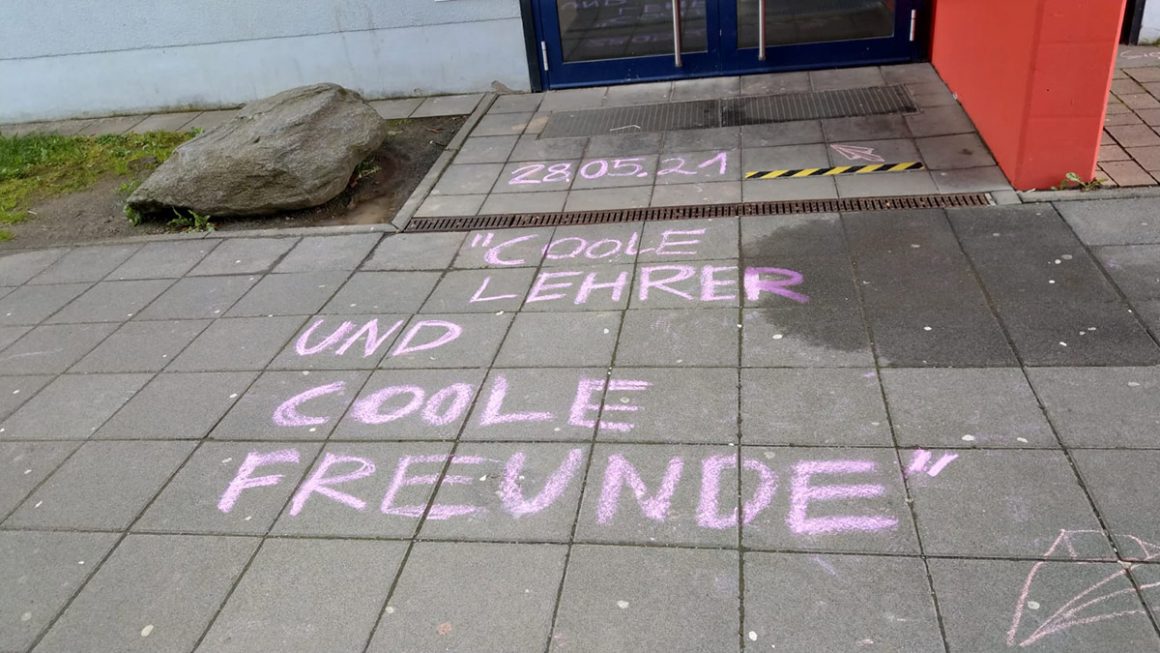 28.05.21
"COOLE
LEHRER
UND
COOLE
FREUNDE"